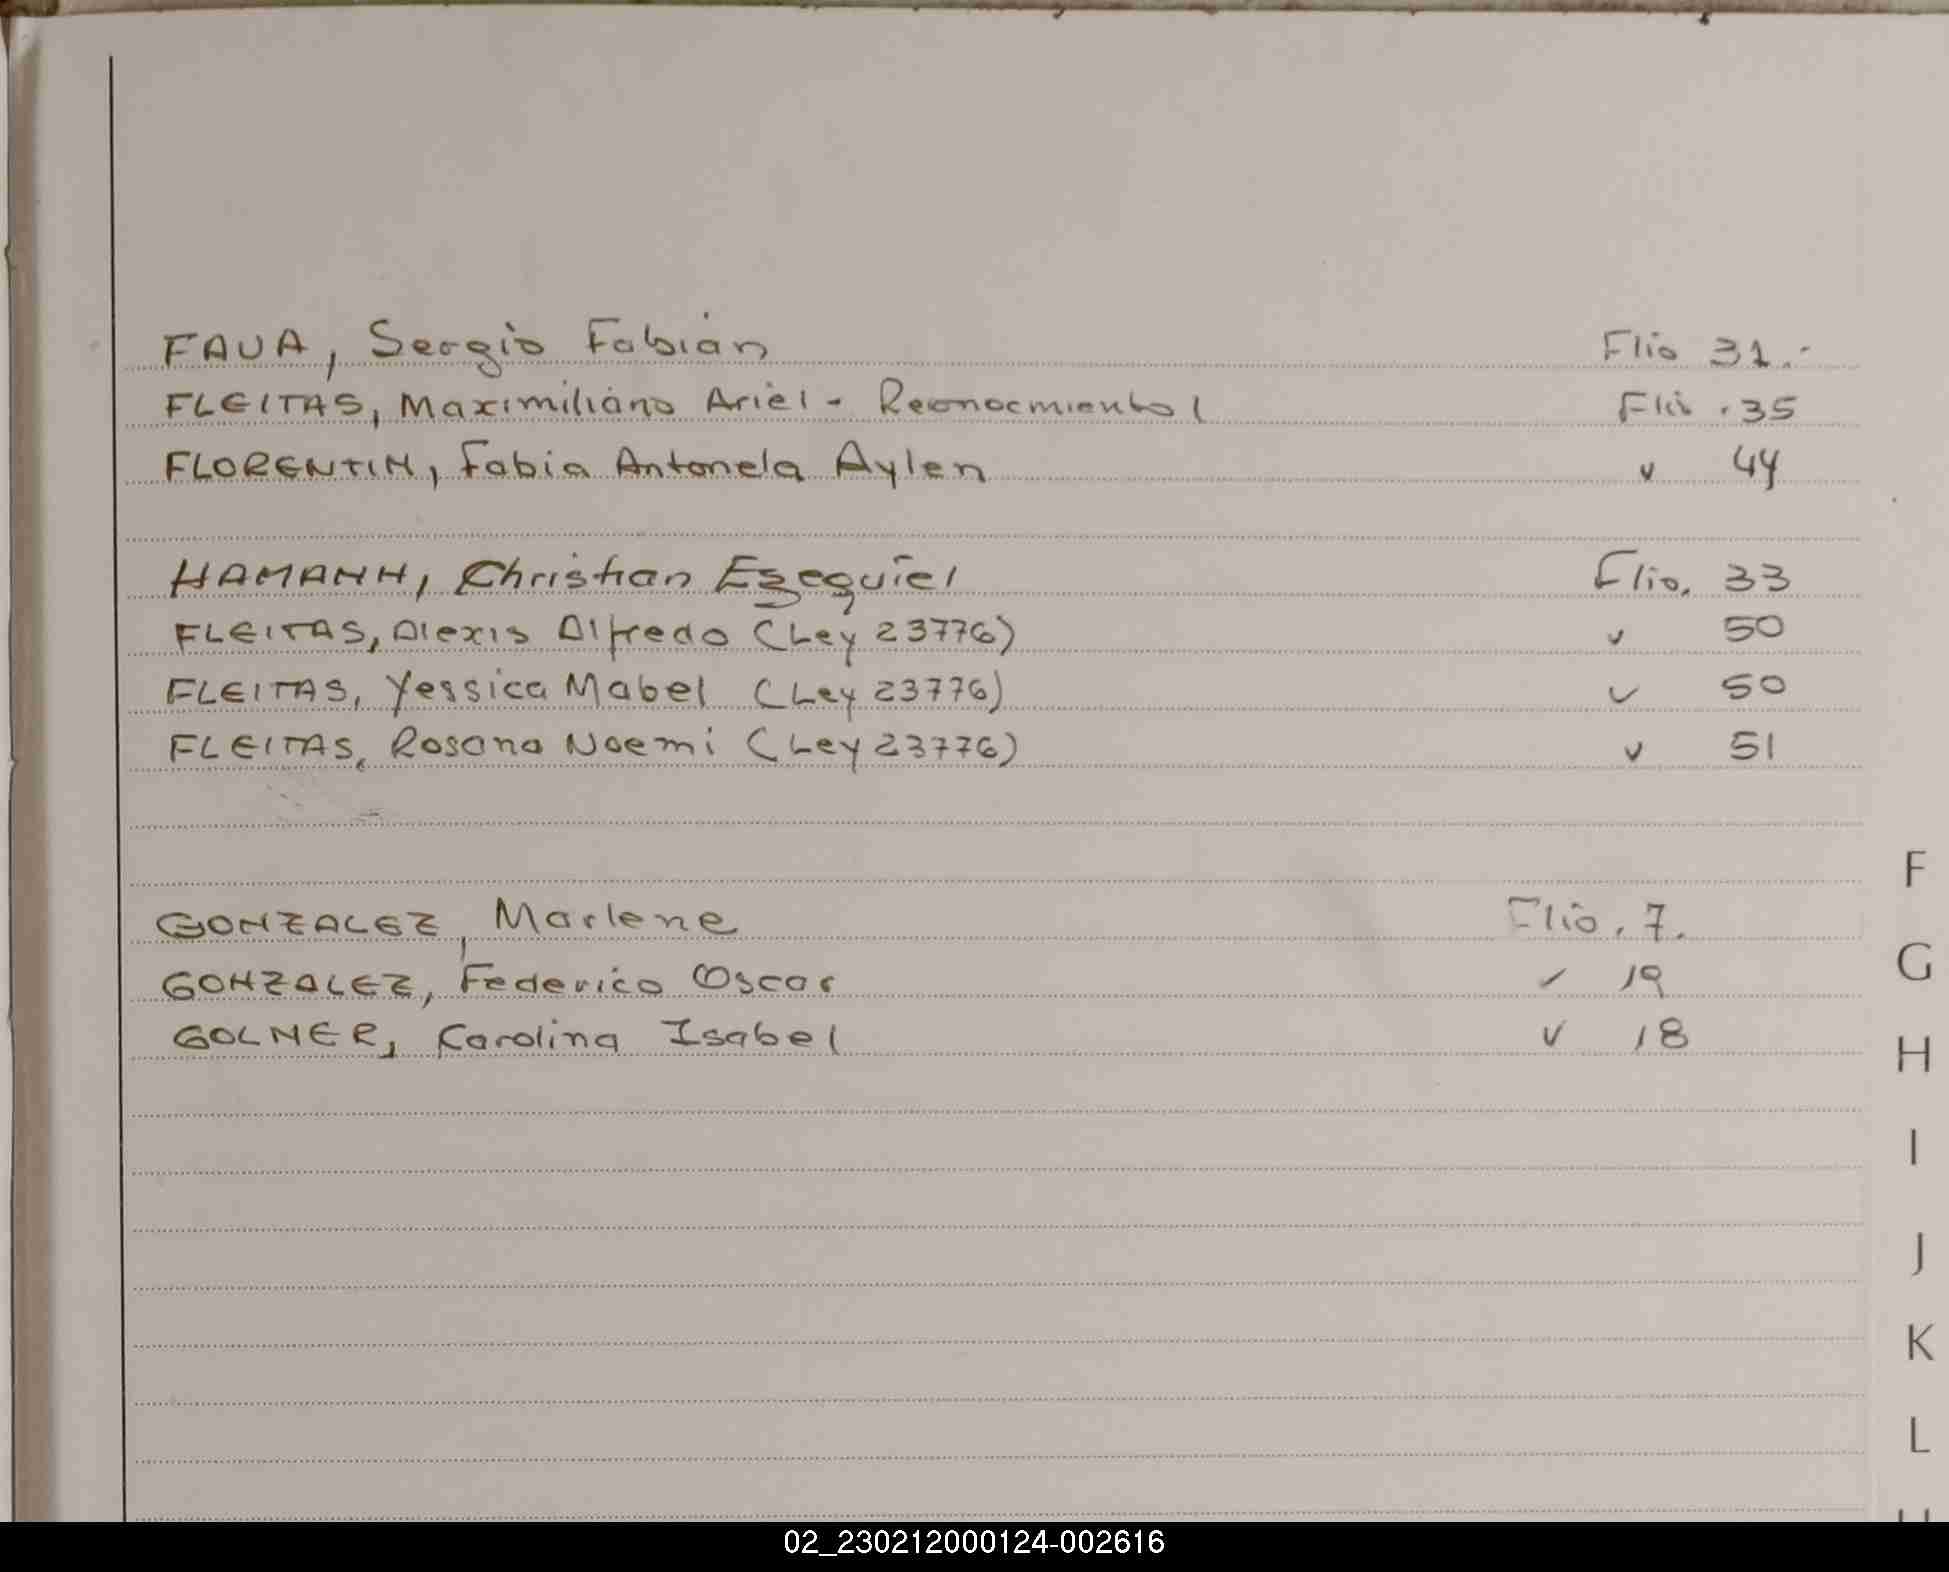 FAVA, Sergio Fabián Flio 31.-
FLEITAS, Maximiliano Ariel - Reconocmiento Flio . 35
FLORENTIN, Fabia Antonela Aylen v 44
HAMANN, Christian Ezequiel Flio. 33
FLEITAS, Alexis Alfredo (Ley 23776) v 50
FLEITAS, Yessica Mabel (Ley 23776) v 50
FLEITAS, Rosana Noemi (Ley 23776) v 51
F
GONZALEZ, Marlene Flio. 7.
G
GONZALEZ, Federico Oscar 19
GOLNER, Carolina Isabel v 18
H
I
J
K
L
02_230212000124-002616